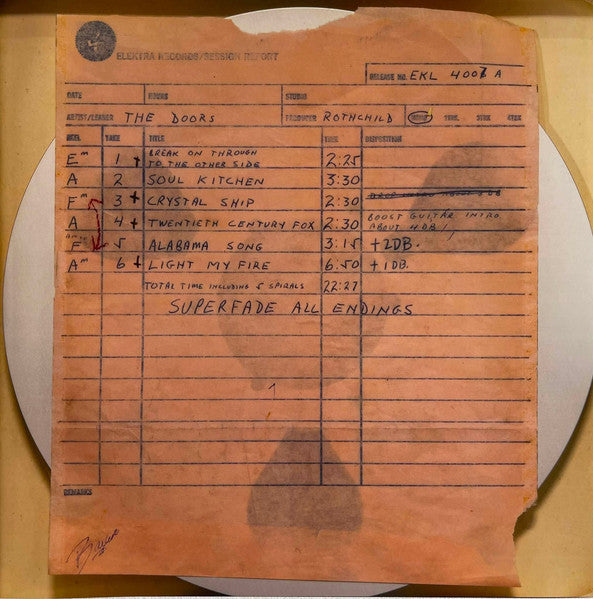 4
ELEKTRA RECORDS/SESSION REPORT
RELEASE NO. EKL 4007 A
DATE HOURS STUDIO
ARTIST/LEADER THE DOORS PRODUCER ROTHCHILD MONO 2TRK. 3TRK 4TRK
REEL TAKE TITLE TIME DISPOSITION
Em 1 BREAK ON THROUGH
TO THE OTHER SIDE 2:25
A 2 SOUL KITCHEN 3:30
Fm 3 + CRYSTAL SHIP 2:30
A 4 + TWENTIETH CENTURY FOX 2:30 BOOST GUITAR INTRO
ABOUT 4DB!
F 5 ALABAMA SONG 3:15 +2DB.
Am 6 + LIGHT MY FIRE 6:50 +1DB.
TOTAL TIME INCLUDING 5 SPIRALS 22:27
SUPERFADE ALL ENDINGS
REMARKS